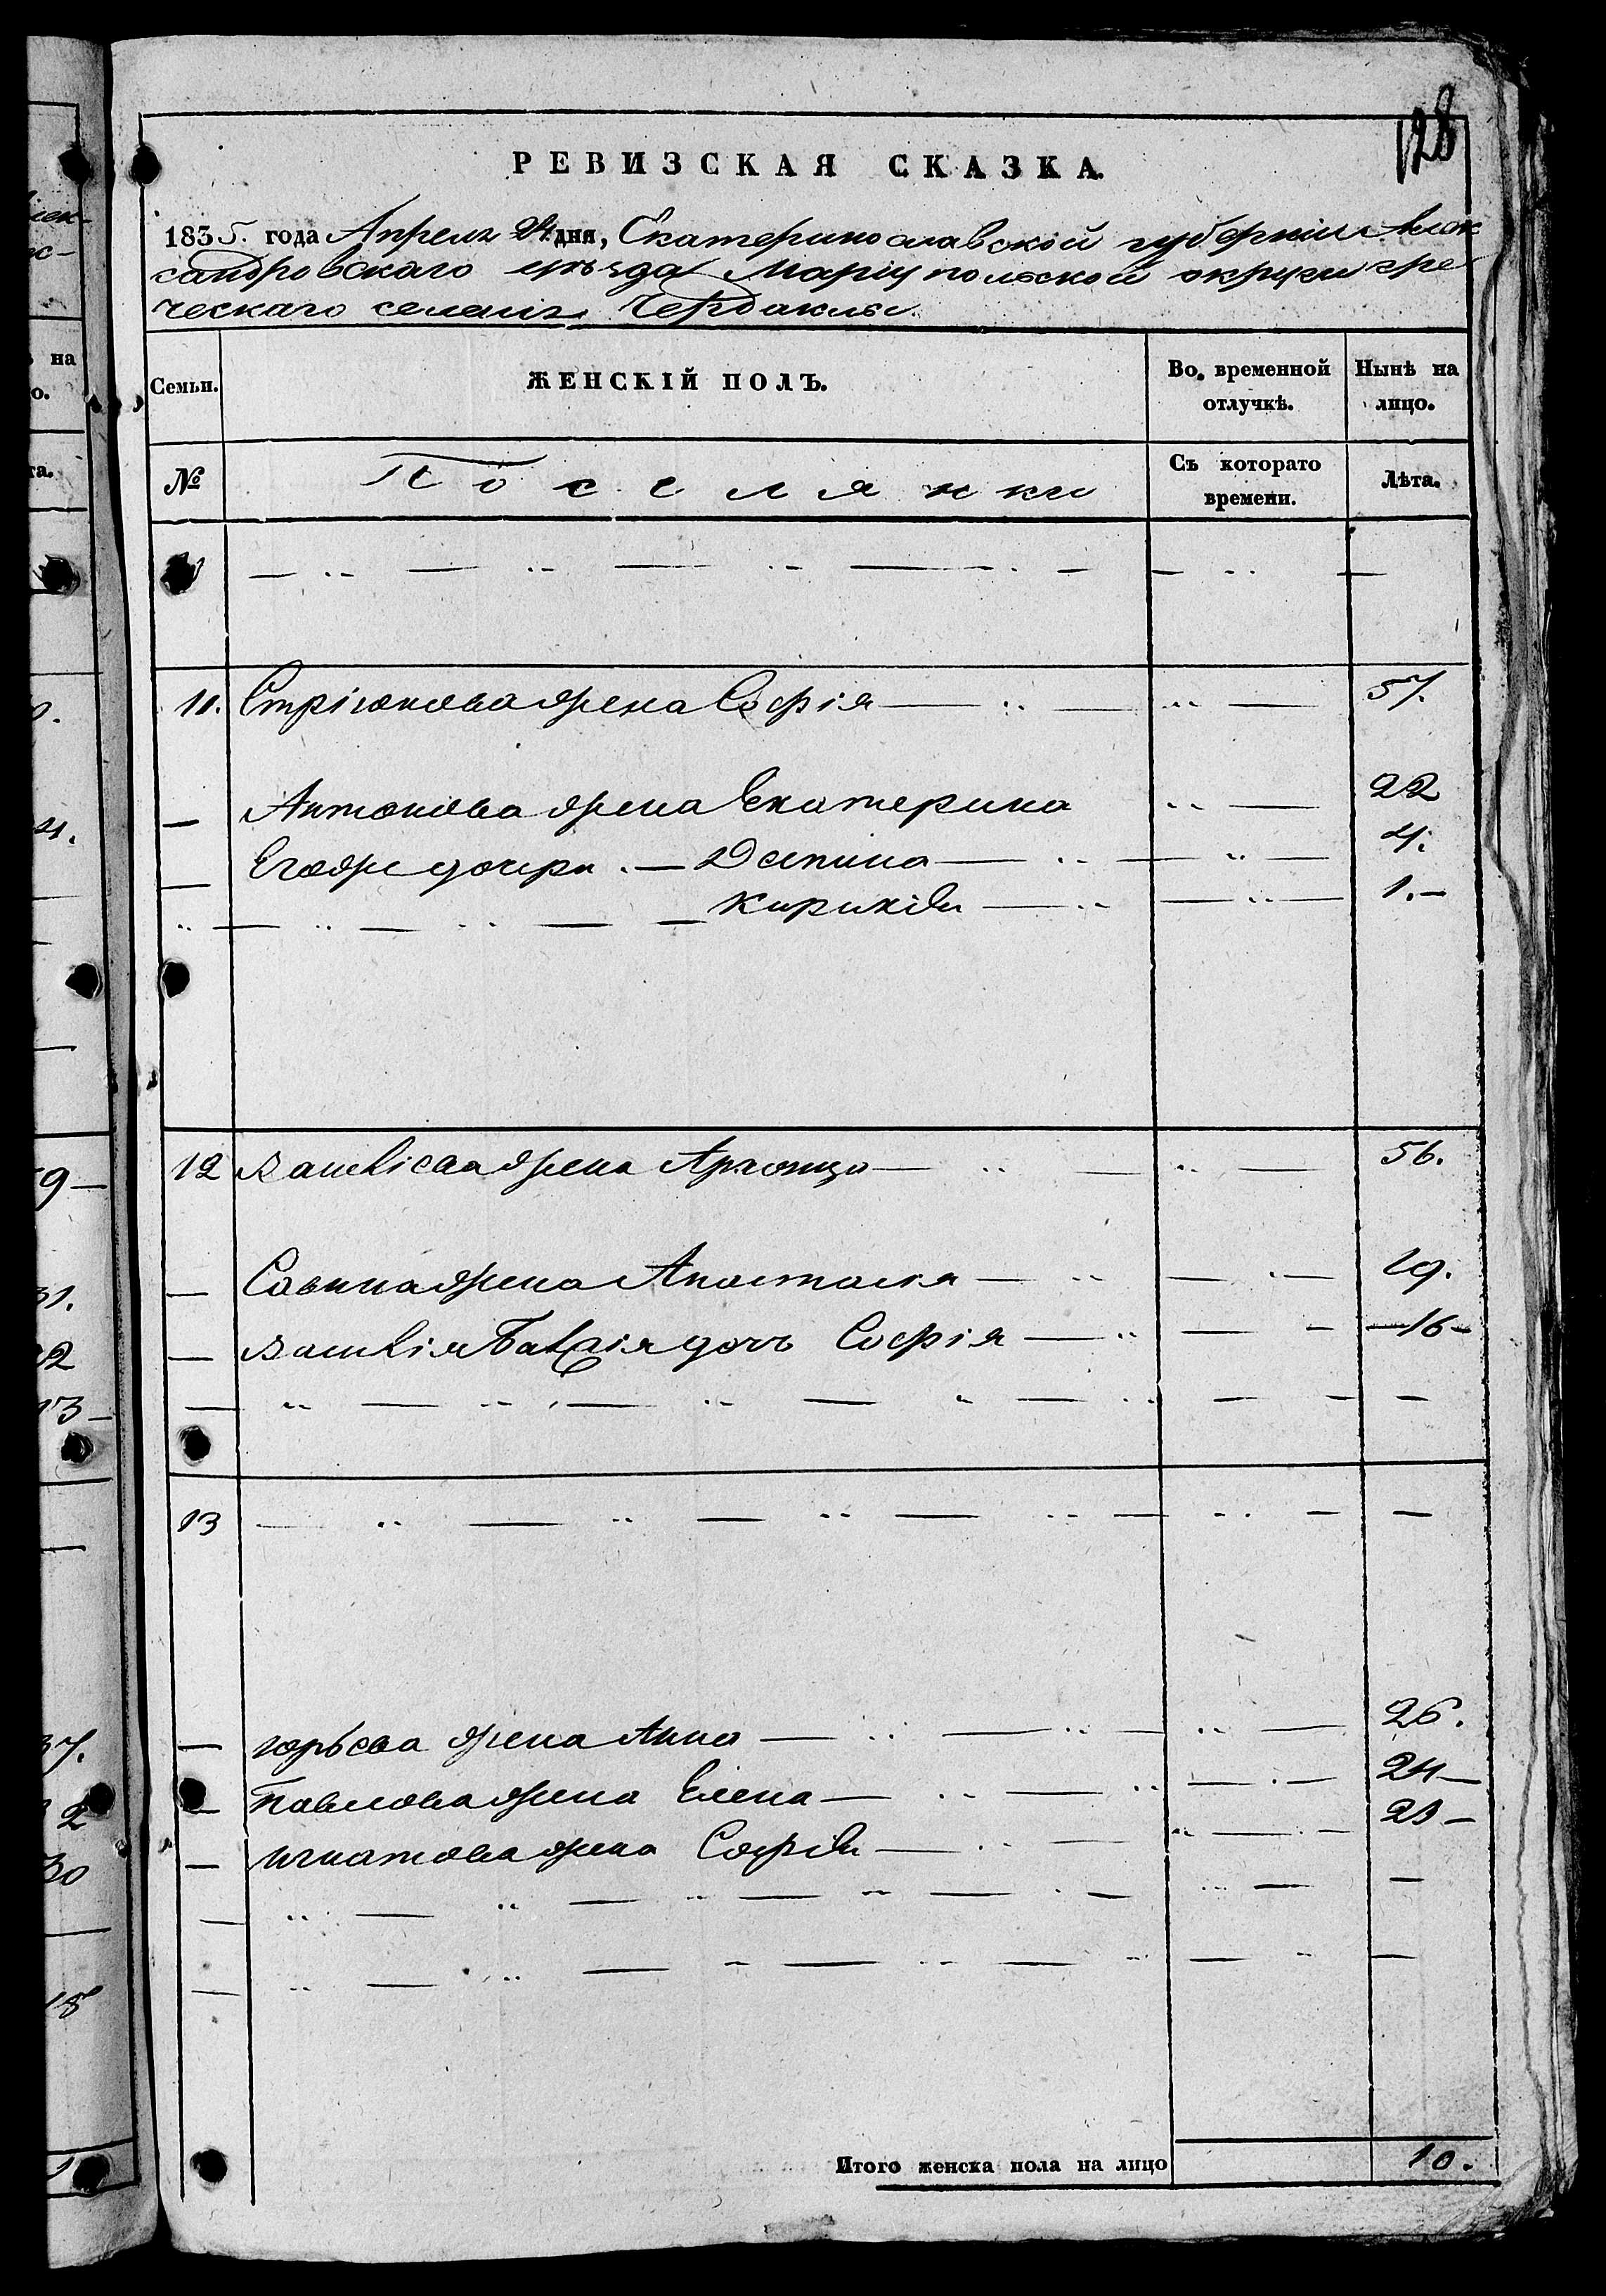 128
РЕВИЗСКАЯ СКАЗКА.
1835. года Апреля 24 дня, Екатеринославской губернiи Алек
сандровскаго уѣзда Марiупольской округи гре
ческаго селенiя Чердаклы.
Семьи. ЖЕНСКІЙ ПОЛЪ. Во временной отлучкѣ. Нынѣ на лицо.
№ Поселянки Съ которато времени. Лѣта.
11. жена Софiя 57.
Антонова жена Екатерина 22
Егоже дочери Деспина 4.
Кирикiи 1.
12 жена 56.
Савина жена Анастасiя 19.
дочь Софiя 16
13
юрьева жена Анна 26.
Павлова жена Елена 24
игнатова жена Софiи 23
Итого женска пола на лицо 10.